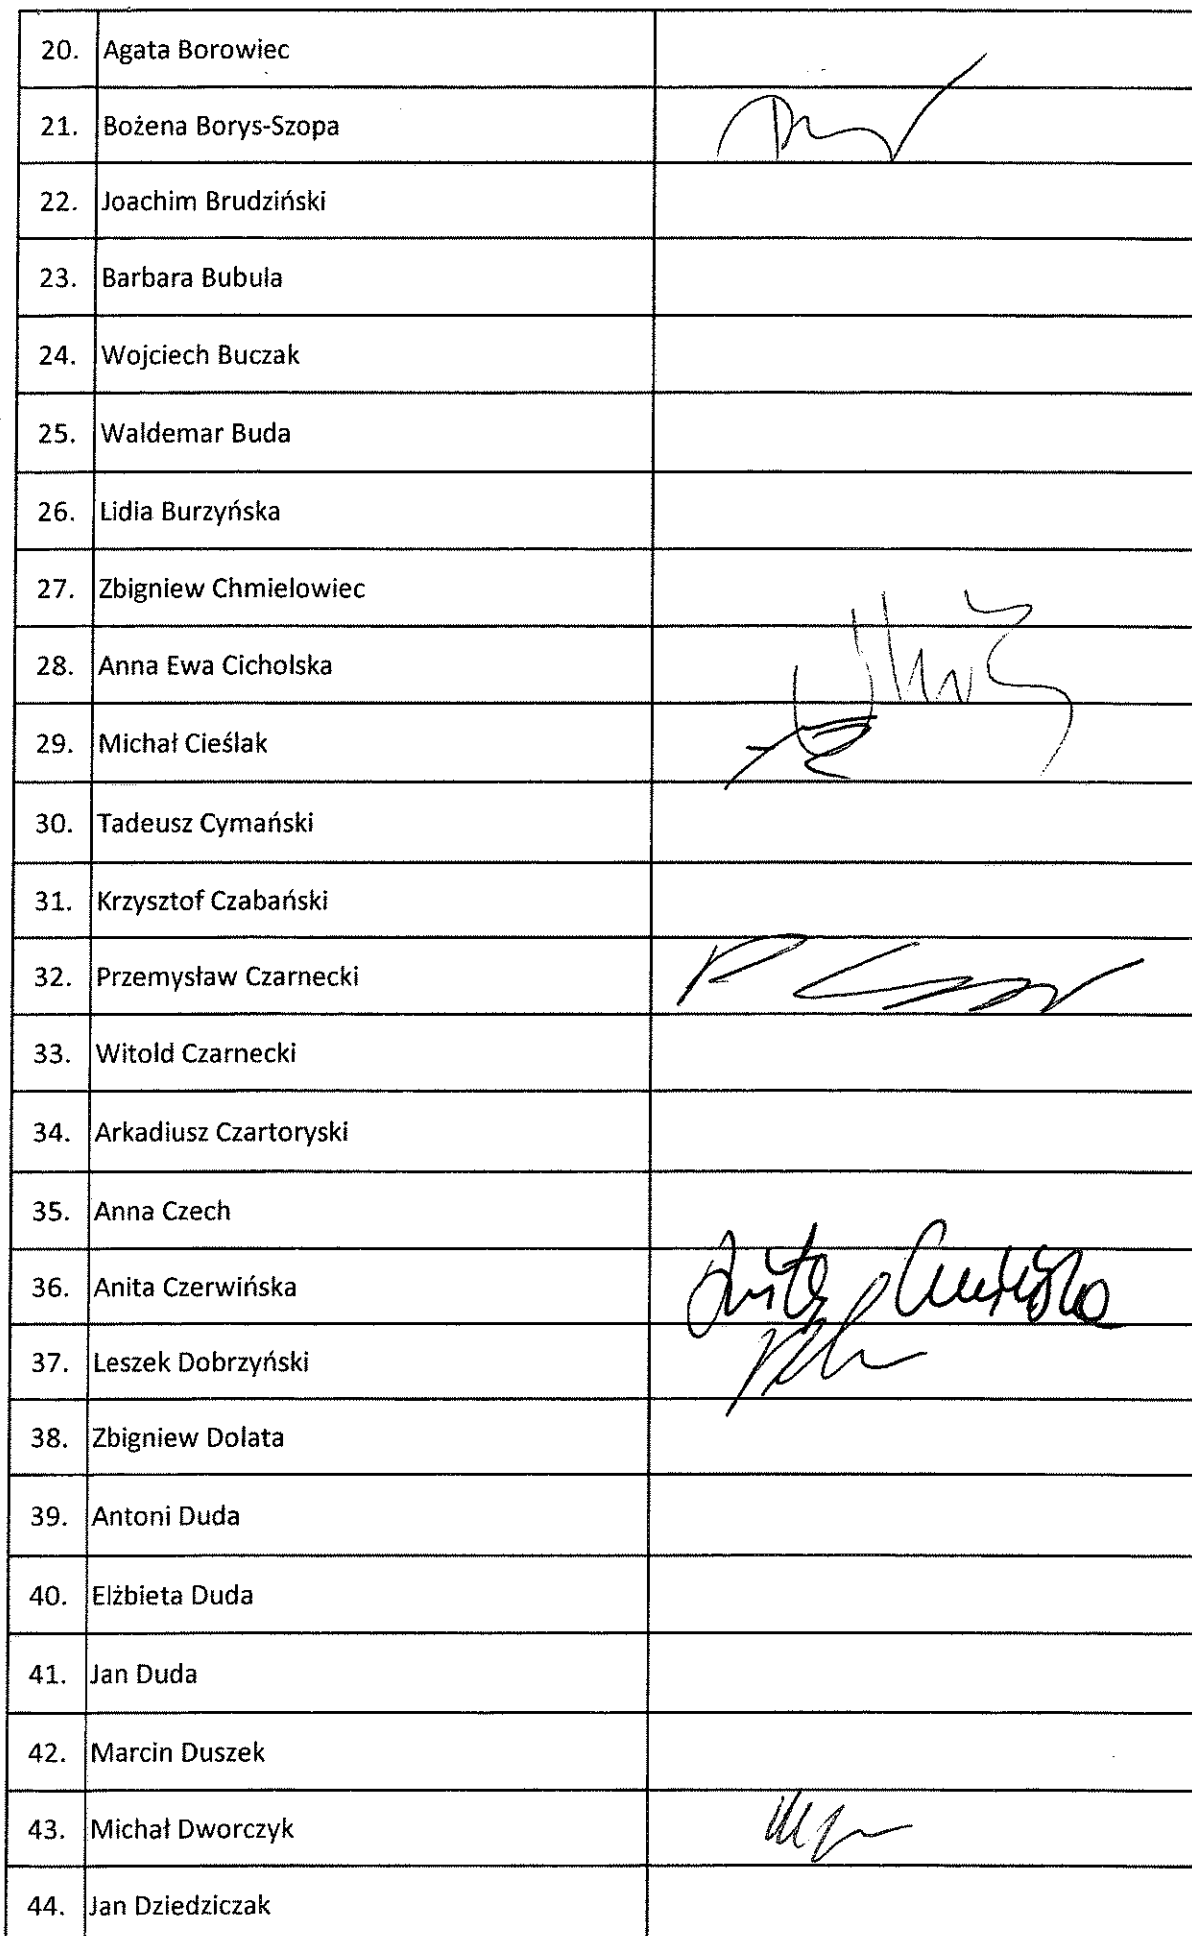 20. Agata Borowiec
21. Bożena Borys-Szopa
22. Joachim Brudziński
23. Barbara Bubula
24. Wojciech Buczak
25. Waldemar Buda
26. Lidia Burzyńska
27. Zbigniew Chmielowiec
28. Anna Ewa Cicholska
29. Michał Cieślak
30. Tadeusz Cymański
31. Krzysztof Czabański
32. Przemysław Czarnecki
33. Witold Czarnecki
34. Arkadiusz Czartoryski
35. Anna Czech
36. Anita Czerwińska Anita Czerwińska
37. Leszek Dobrzyński
38. Zbigniew Dolata
39. Antoni Duda
40. Elżbieta Duda
41. Jan Duda
42. Marcin Duszek
43. Michał Dworczyk
44. Jan Dziedziczak